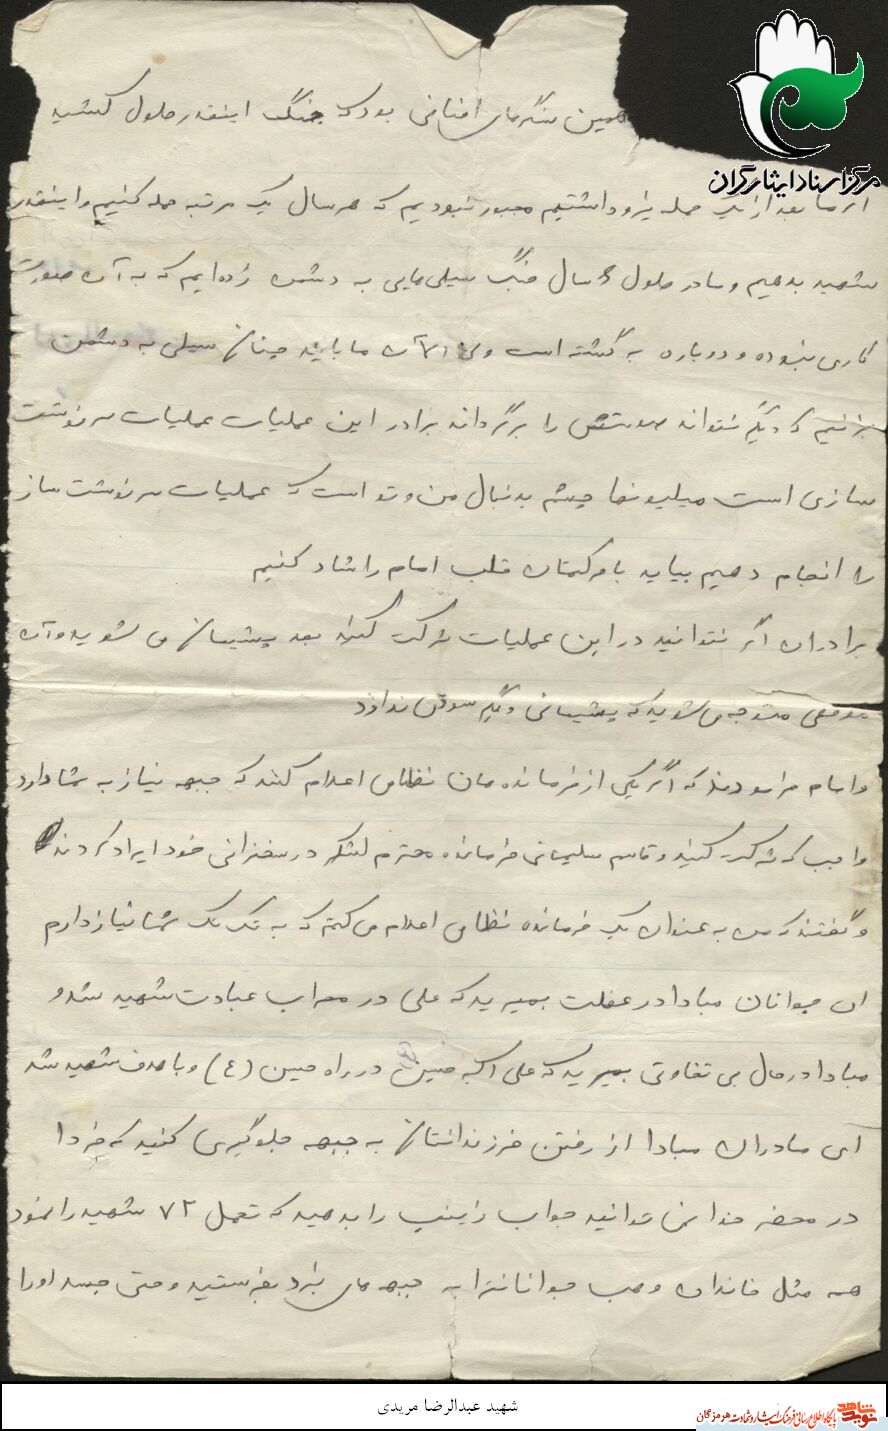 مرکز اسناد ایثارگران
همین سنگرهای اضافی بود که جنگ اینقدر طول کشید
اگر ما بعد از یک حمله نیرو داشتیم مجبور نبودیم که هر سال یک مرتبه حمله کنیم و اینقدر
شهید بدهیم و ما در طول 6 سال جنگ سیلی هایی به دشمن زده ایم که به آن صورت
کاری نبوده و دوباره به گشته است ولی الآن ما باید چنان سیلی به دشمن
بزنیم که دیگر نتواند صورتش را برگرداند برادر این عملیات عملیات سرنوشت
سازی است میلیونها چشم بدنبال من و تو است که عملیات سرنوشت ساز
را انجام دهیم بیاید با حرکتمان قلب امام را شاد کنیم
برادران اگر نتوانید در این عملیات شرکت کنید بعد پشیمان می شوید و آن
موقعی متوجه می شوید که پشیمانی دیگر سودی ندارد
و امام فرمودند که اگر یکی از فرمانده هان نظامی اعلام کنند که جبهه نیاز به شما دارد
واجب که شرکت کنید و قاسم سلیمانی فرمانده محترم لشکر در سخنرانی خود ایراد کردند
و گفتند که من به عنوان یک فرمانده نظامی اعلام می کنم که به تک تک شما نیاز دارم
ای جوانان مبادا در غفلت بمیرید که علی در محراب عبادت شهید شد و
مبادا در حال بی تفاوتی بمیرید که علی اکبر حسین در راه حسین (ع) و با هدف شهید شد
ای مادران مبادا از رفتن فرزندانتان به جبهه جلوگیری کنید که فردا
در محضر خدا نمی توانید جواب زینب را بدهید که تحمل ۷۲ شهید را نمود
همه مثل خاندان وهب جوانانتان را به جبهه های نبرد بفرستید و حتی جسد او را
شهید عبدالرضا مریدی
نوید شاهد
پایگاه اطلاع رسانی فرهنگ ایثار و شهادت هرمزگان